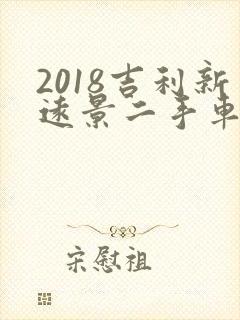 2018吉利新
远景二手车
宋慰祖